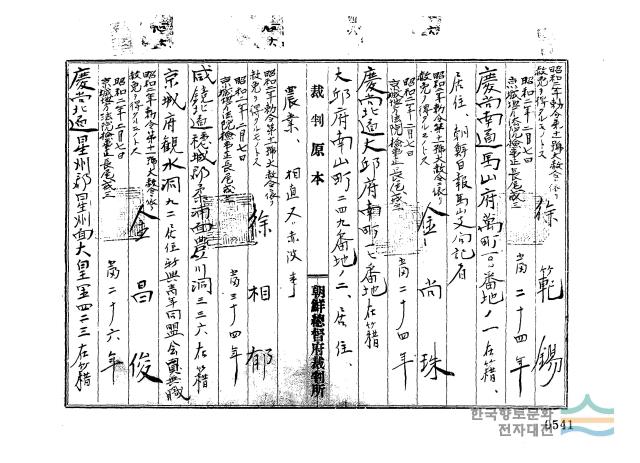 昭和二年勅令第十一號大赦令ニ依リ
赦免ヲ得タルモノトス
昭和二年二月七日
京城地方法院檢事正長尾戒三
徐範錫
當二十四年
慶尚南道馬山府萬町 番地ノ一在籍、
居住、朝鮮日報馬山支局記者
昭和二年勅令第十一號大赦令ニ依リ
赦免ヲ得タルモノトス
昭和二年二月七日
京城地方法院檢事正長尾戒三
金尚珠
當二十四年
慶尚北道大邱府南町 番地在籍
大邱府南山町二四九番地ノ二、居住、
裁判原本
朝鮮總督府裁判所
農業、相直又ハ赤波事
徐相郁
當三十四年
昭和二年勅令第十一號大赦令ニ依リ
赦免ヲ得タルモノトス
昭和二年二月七日
京城地方法院檢事正長尾戒三
咸鏡北道 城郡 南面豊川洞三三六在籍
京城府觀水洞九二居住新興青年同盟會員無職
昭和二年勅令第十一號大赦令ニ依リ
赦免ヲ得タルモノトス
昭和二年二月七日
京城地方法院檢事正長尾戒三
金昌俊
當二十六年
慶尚北道星州郡星州面大皇 四二三在籍
한국향토문화
전자대전
0541